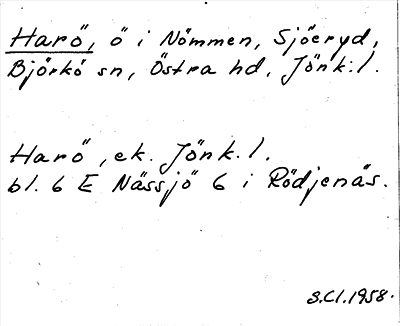 Harö, ö i Nömmen, Sjöeryd,
Björkö sn, Östra hd, Jönk.l.
Harö, ek. Jönk.l.
bl. 6 E Nässjö 6 i Rödjenäs.
S.Cl.1958.